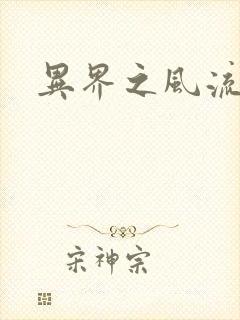 異界之風流
宋神宗